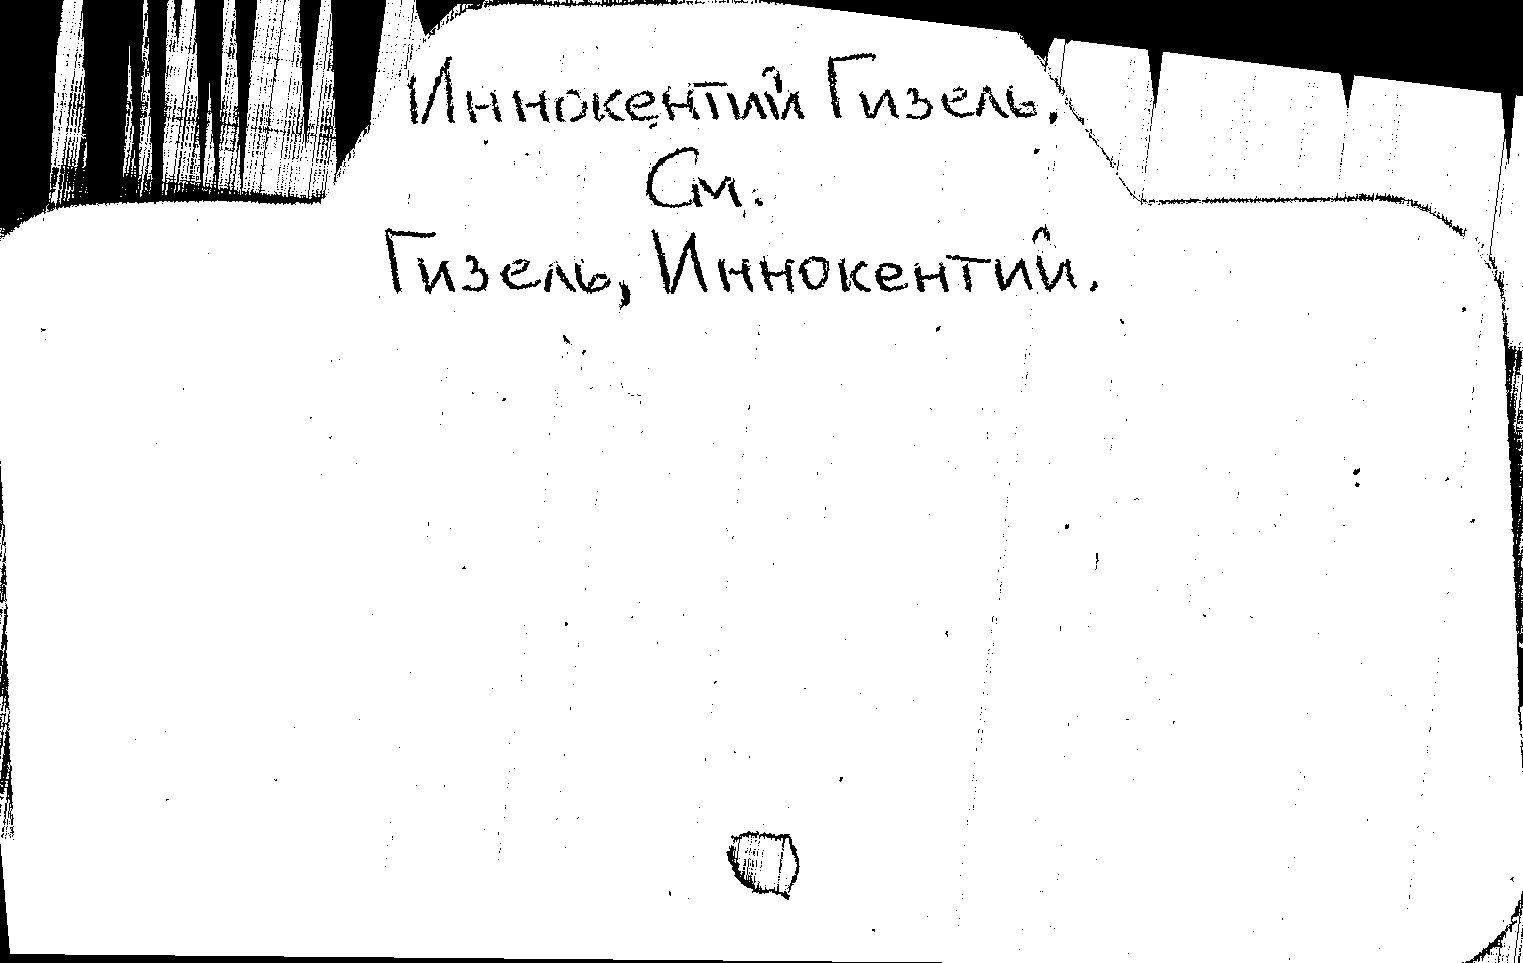 Иннокентий Гизель.
См.
Гизель, Иннокентий.